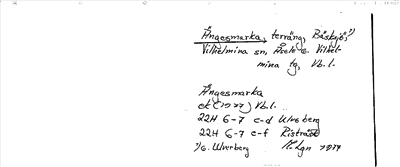 Ångesmarka, terräng, Båsksjö,¹⁾
Vilhelmina sn, Åsele o. Vilhel-
mina tg, Vb. l.
Ångesmarka
ek (1977) Vb. l.
22H 6-7 c-d Ulvoberg
22H 6-7 e-f Risträsk
¹⁾ G. Ulverberg 1977